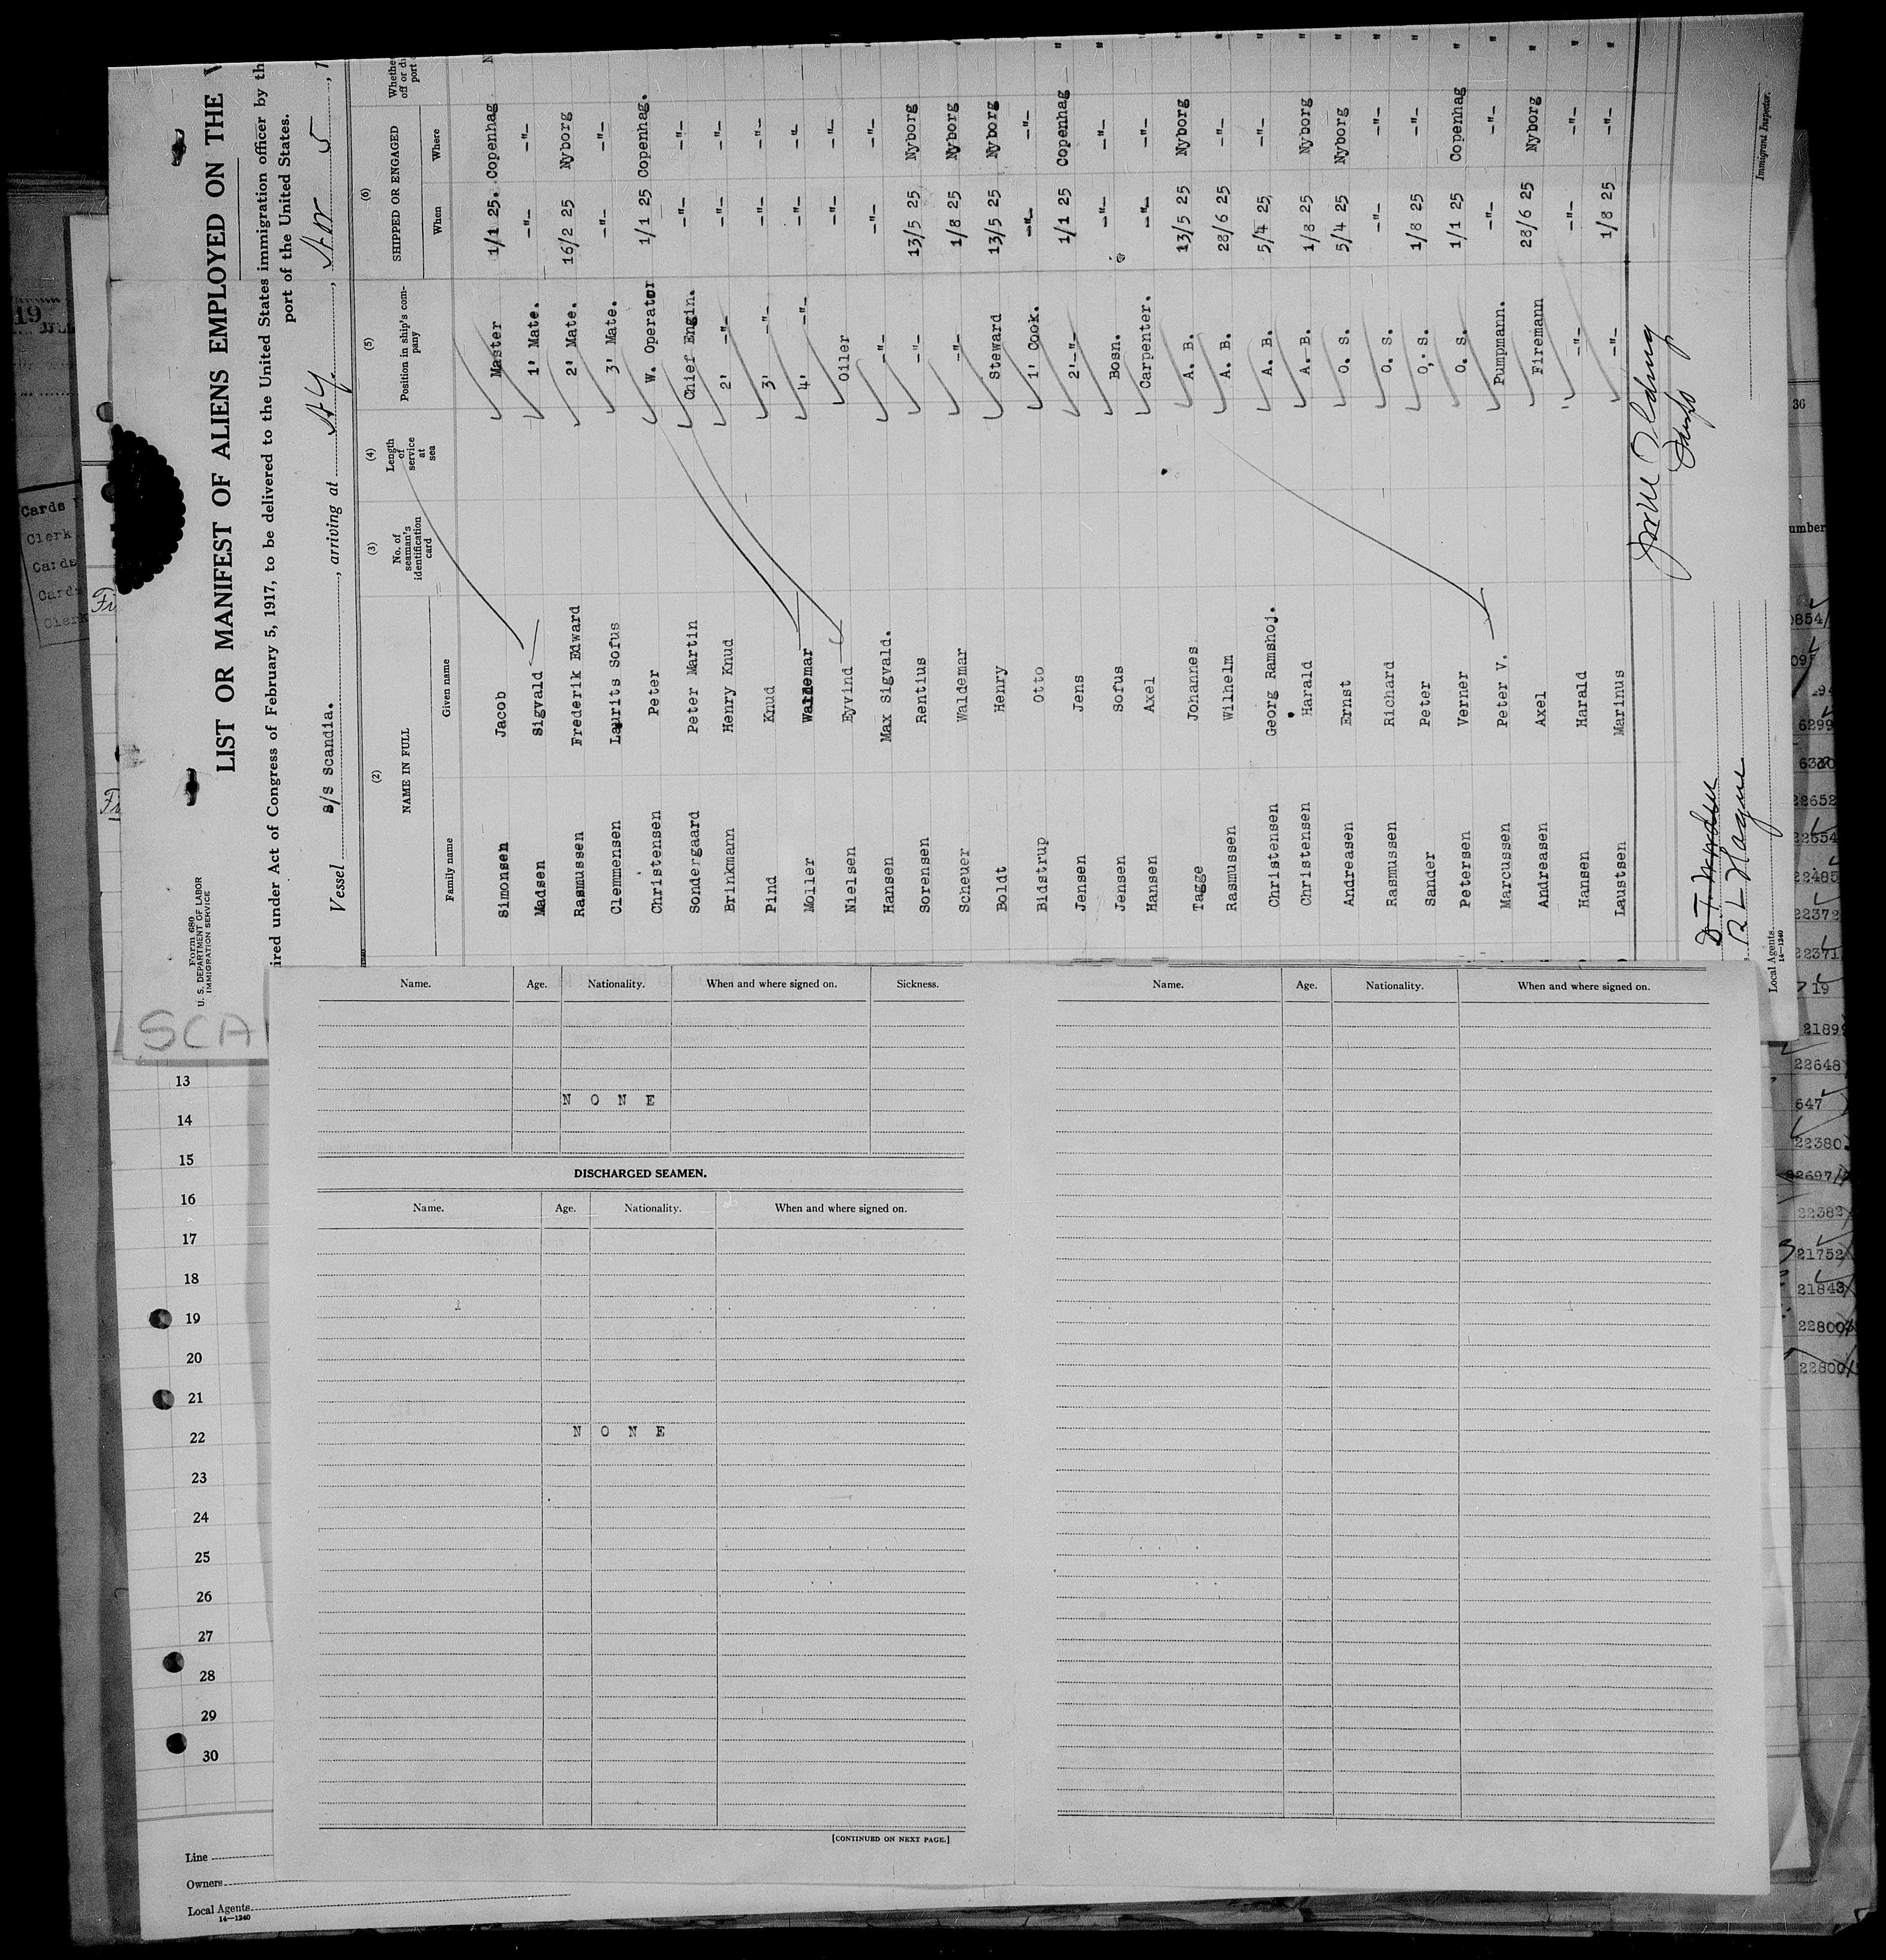 Form 680
U. S. DEPARTMENT OF LABOR
IMMIGRATION SERVICE
LIST OR MANIFEST OF ALIENS EMPLOYED ON THE
ired under Act of Congress of February 5, 1917, to be delivered to the United States immigration officer by th
port of the United States.
Vessel S/S Scandia., arriving at
(2) (3) (4) (5) (6)
NAME IN FULL No. of seaman's identification card Length of service at sea Position in ship's company SHIPPED OR ENGAGED
Family name Given name When Where
Simonsen Jacob Master 1/1 25. Copenhag
Madsen Sigvald 1' Mate. -"- -"-
Rasmussen Frederik Edward 2' Mate. 16/2 25 Nyborg
Clemmensen Laurits Sofus 3' Mate. -"- -"-
Christensen Peter W. Operator 1/1 25 Copenhag.
Sondergaard Peter Martin Chief Engin. -"- -"-
Brinkmann Henry Knud 2' -"- -"- -"-
Pind Knud 3' -"- -"- -"-
Moller Waldemar 4' -"- -"- -"-
Nielsen Eyvind Oiler -"- -"-
Hansen Max Sigvald. -"- -"- -"-
Sorensen Rentius -"- 13/5 25 Nyborg
Scheuer Waldemar -"- 1/8 25 Nyborg
Boldt Henry Steward 13/5 25 Nyborg
Bidstrup Otto 1' Cook. -"- -"-
Jensen Jens 2'-"- 1/1 25 Copenhag "
Jensen Sofus Bosn. -"- -"- "
Hansen Axel Carpenter. -"- -"-
Tagge Johannes A. B. 13/5 25 Nyborg
Rasmussen Wilhelm A. B. 28/6 25 -"- "
Christensen Georg Ramshoj. A. B. 5/4 25 -"- "
Christensen Harald A. B. 1/8 25 Nyborg "
Andreasen Ernst O. S. 5/4 25 Nyborg "
Rasmussen Richard O. S. -"- -"- "
Sander Peter O. S. 1/8 25 -"- "
Petersen Verner O. S. 1/1 25 Copenhag "
Marcussen Peter V. Pumpmann. -"- -"- "
Andreasen Axel Firemann 28/6 25 Nyborg "
Hansen Harald -"- -"- -"- "
Laustsen Marinus -"- 1/8 25 -"- "
Immigrant Inspector.
R L Hague
Local Agents
14—1240
SCA
Name. Age. Nationality. When and where signed on. Sickness.
N O N E
DISCHARGED SEAMEN.
Name. Age. Nationality. When and where signed on.
N O N E
[CONTINUED ON NEXT PAGE.]
Name. Age. Nationality. When and where signed on.
13
14
15
16
17
18
19
20
21
22
23
24
25
26
27
28
29
30
Line
Owners
Local Agents
14—1240
19
Cards
Clerk
Cards
Cards
Clerk
36
umber
22652
22485
22372
22371
19
22648
647
22380
22382
21752
21843
22800
22800